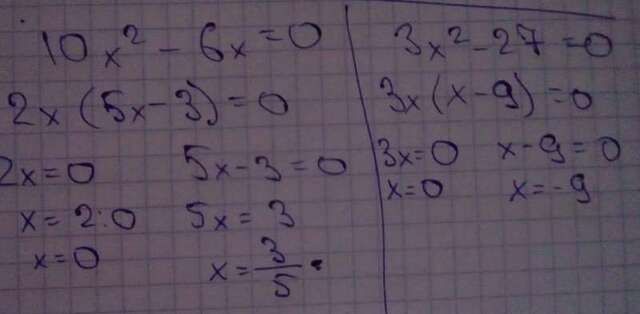 10x² - 6x = 0
2x(5x-3) = 0
2x = 0    5x-3 = 0
x = 2:0    5x = 3
x = 0    x = 3/5
3x² - 27 = 0
3x(x-9) = 0
3x = 0    x-9 = 0
x = 0    x = -9